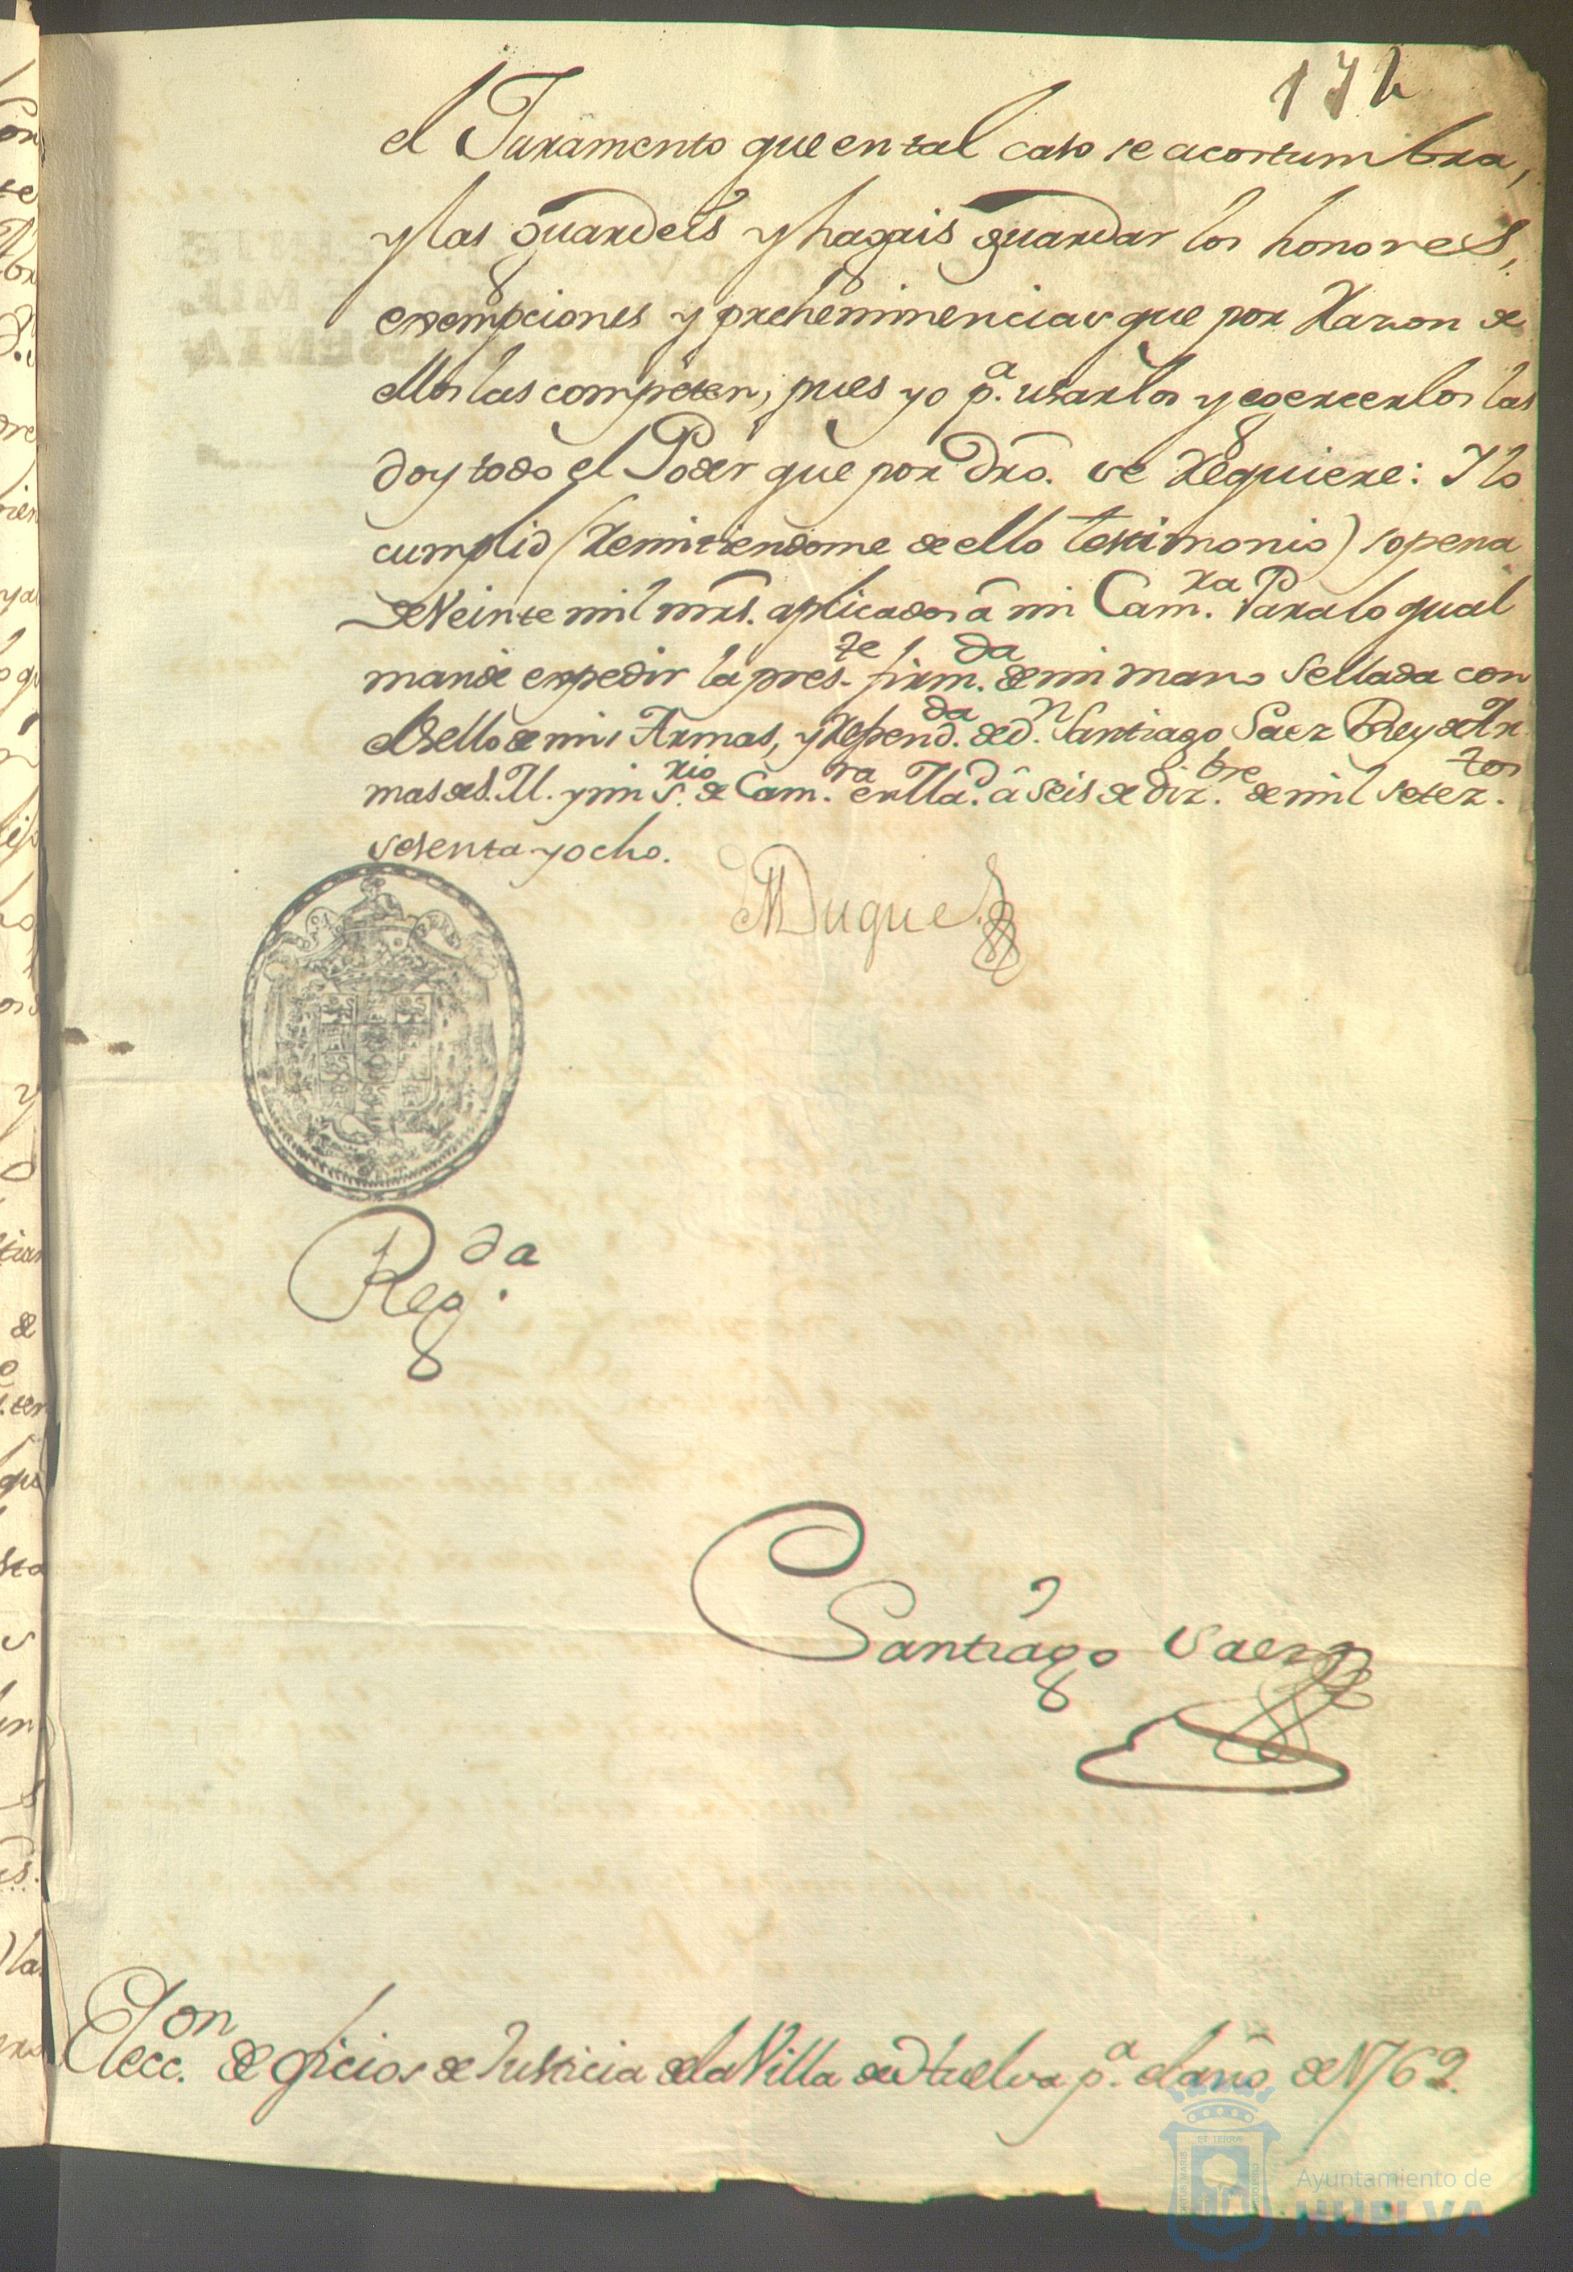 172
el Juramento que en tal caso se acostumbra,
y las guardeis y hagais guardar los honores,
exempciones y preheminencias que por Razon de
ellos las competen, pues yo p.ª usarlos y egercerlos las
doy todo el Poder que por dro. se Requiere: Y lo
cumplid (Remitiendome de ello testimonio) sopena
de Veinte mil mrs. aplicados â mi Cam.ra Para lo qual
mandè expedir la pres.te firm.da de mi mano Sellada con
el Sello de mis Armas, y Refrend.da de d.n Santiago Saez Rey de Ar
mas de S. M. y mi S.rio de Cam.ra en Mad.d â seis de diz.bre de mil setez.tos
sesenta y ocho.
El Duque
Reg.da
Santiago Saez
Elecc.on de oficios de Justicia de la Villa de Huelva p.ª el año de 1769.
Ayuntamiento de
HUELVA